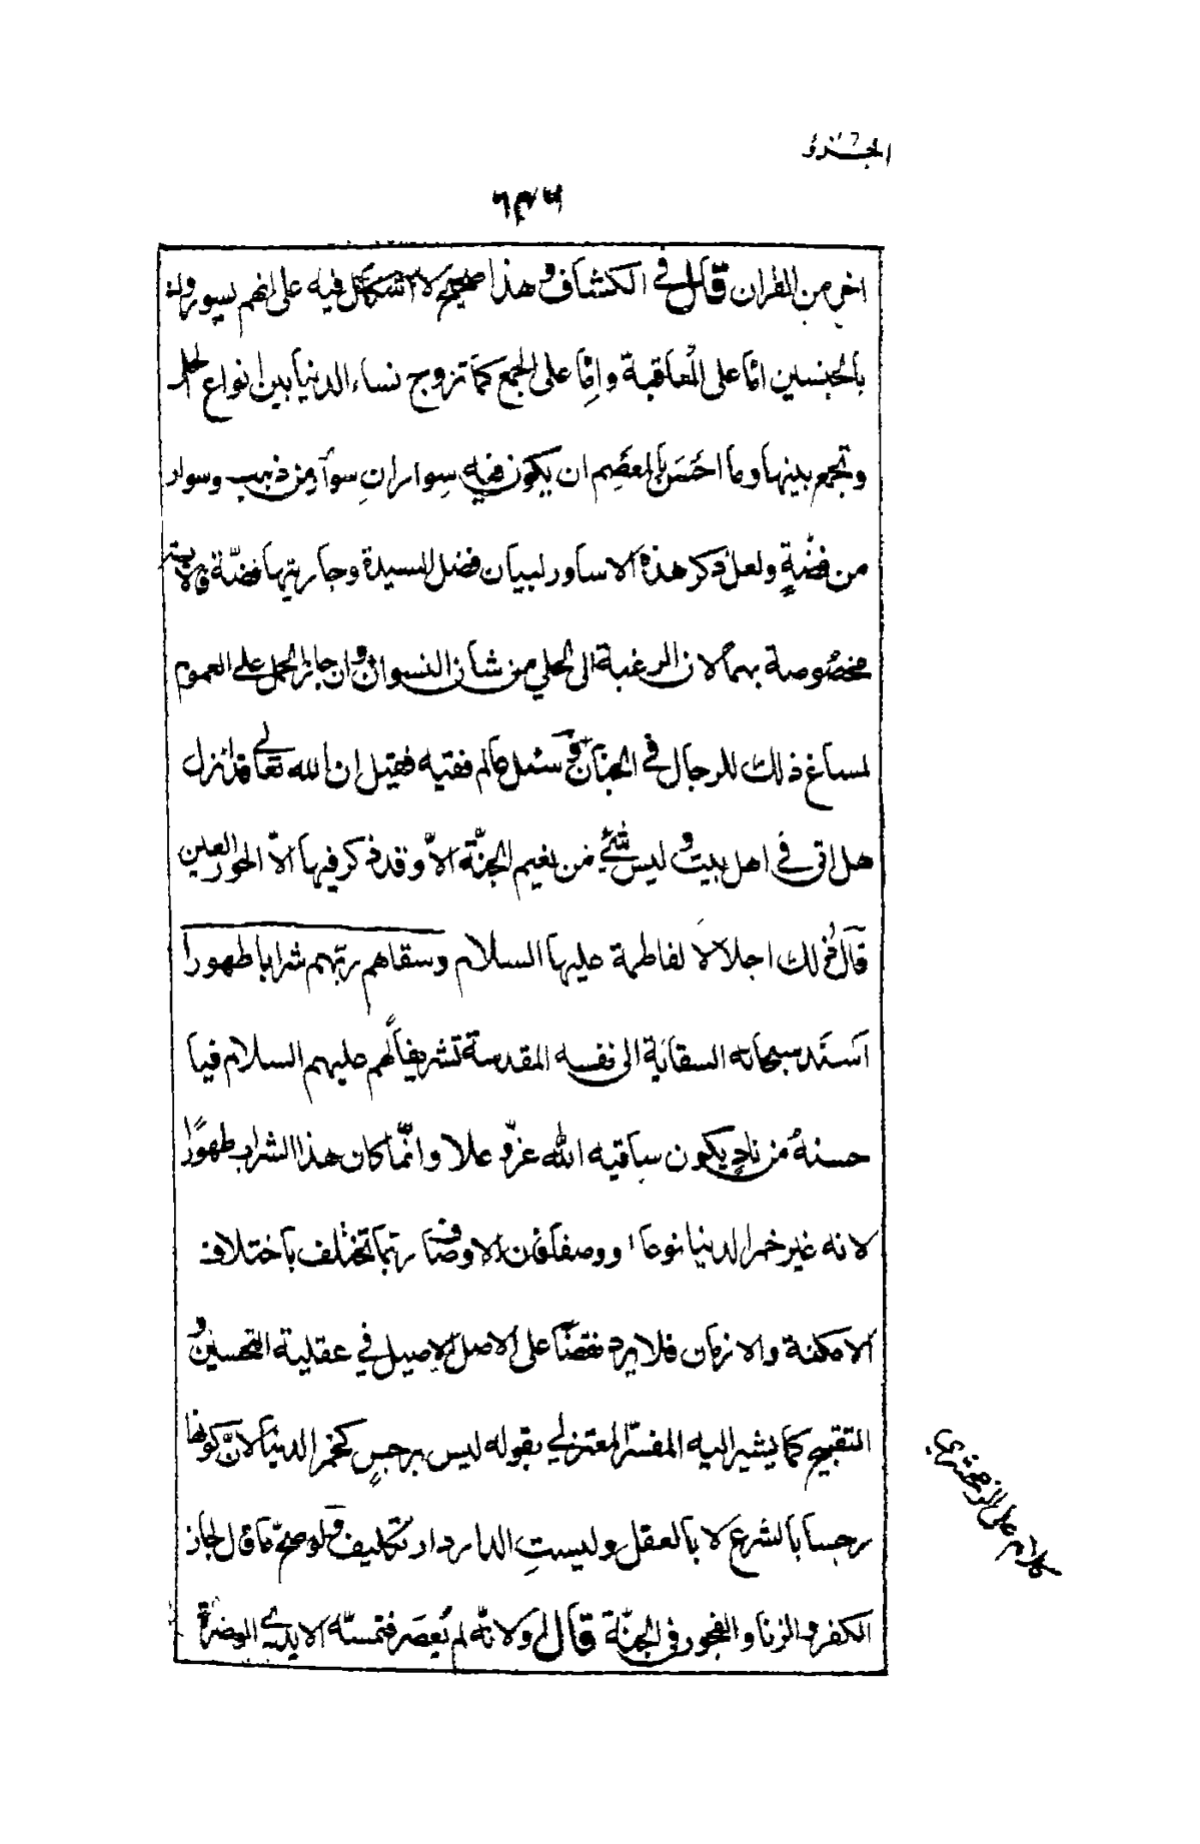 اخر من القران قال في الكشاف وهذا صحيح لا اشكال فيه على انهم يسورون
بالجنسين امّا على المُعاقبة وامّا على الجمع كما تزوج نساء الدنيا بين انواع الحلي
وتجمع بينها وما احسَن بالمعصَم ان يكون فيه سِواران سوار من ذهب وسوار
من فضّةٍ ولعل ذكر هذه الاساور لبيان فضل السيدة وجاريتها فضّة
مخصُوصة بهما لان الرغبة الى الحلي من شان النسوان وان جاز الحمل على العموم
لمساغ ذلك للرجال في الجنان وقد سئل عالم فقيه فقيل ان الله تعالى قد انزل
هل اتى في اهل بيت وليس شئ من نعيم الجنّة الاّ وقد ذكر فيها الاّ الحور العين
قال ذلك اجلالا لفاطمة عليها السلام وسقاهم ربّهم شرابا طهورا
اسند سبحانه السقاية الى نفسه المقدسة تشريفاً لهم عليهم السلام فيا
حسنهُ من نادٍ يكون ساقيه الله عزّ وعلا وانّما كان هذا الشراب طهورًا
لانه غير خمر الدنيا نوعا ووصفا فان الاوصاف ربّما تختلف باختلاف
الامكنة والازمان فلا يرد نقضًا على الاصل الاصيل في عقلية التحسين و
التقبيح كما يشير اليه المفسّر المعتزلي بقوله ليس برجسٍ كخمر الدنيا لانّ كونها
رجسا بالشرع لا بالعقل وليستِ الدار دار تكليف ولو صحّ ما قال لجاز
الكفر والزنا والفجور في الجنّة قال ولانّه لم يُعصَر فتمسّه الايدي الوضرة
كلام على الزمخشري